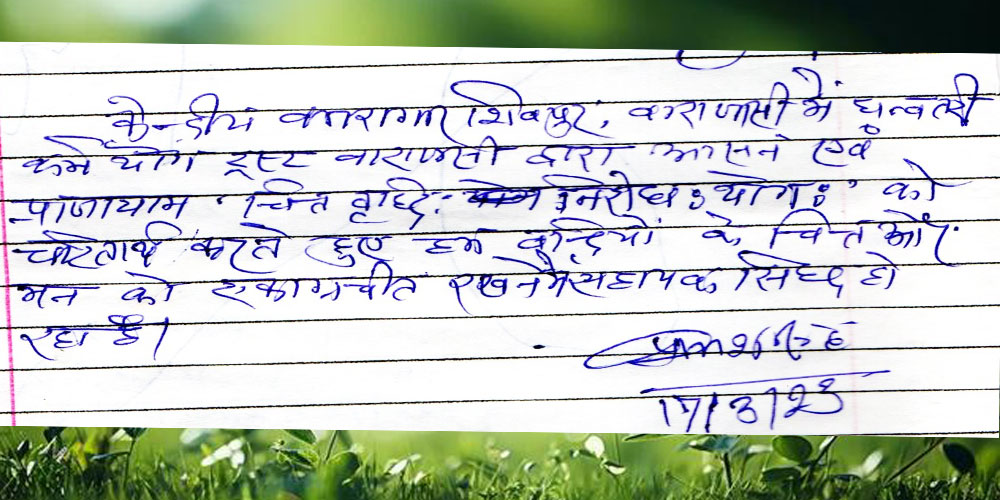 केन्द्रीय कारागार शिवपुर, वाराणसी में धन्वन्तरी
कर्म योग ट्रस्ट वाराणसी द्वारा आसन एवं
प्राणायाम 'चित्त वृध्दि: निरोध: योग:' को
चरितार्थ करते हुए हम वन्दियों के चित्त और
मन को एकाग्रचीत रखने में सहायक सिध्द हो
रहा है।
17/3/23